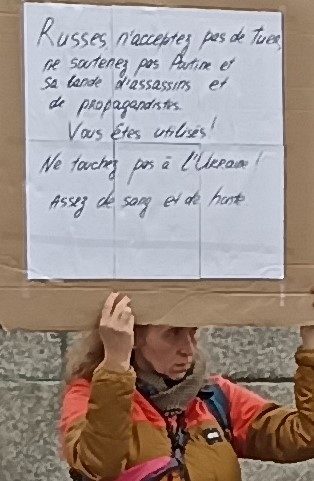 Russes, n'acceptez pas de tuer,
ne soutenez pas Poutine et
sa bande d'assassins et
de propagandistes.
Vous êtes utilisés!
Ne touchez pas à l'Ukraine!
Assez de sang et de honte